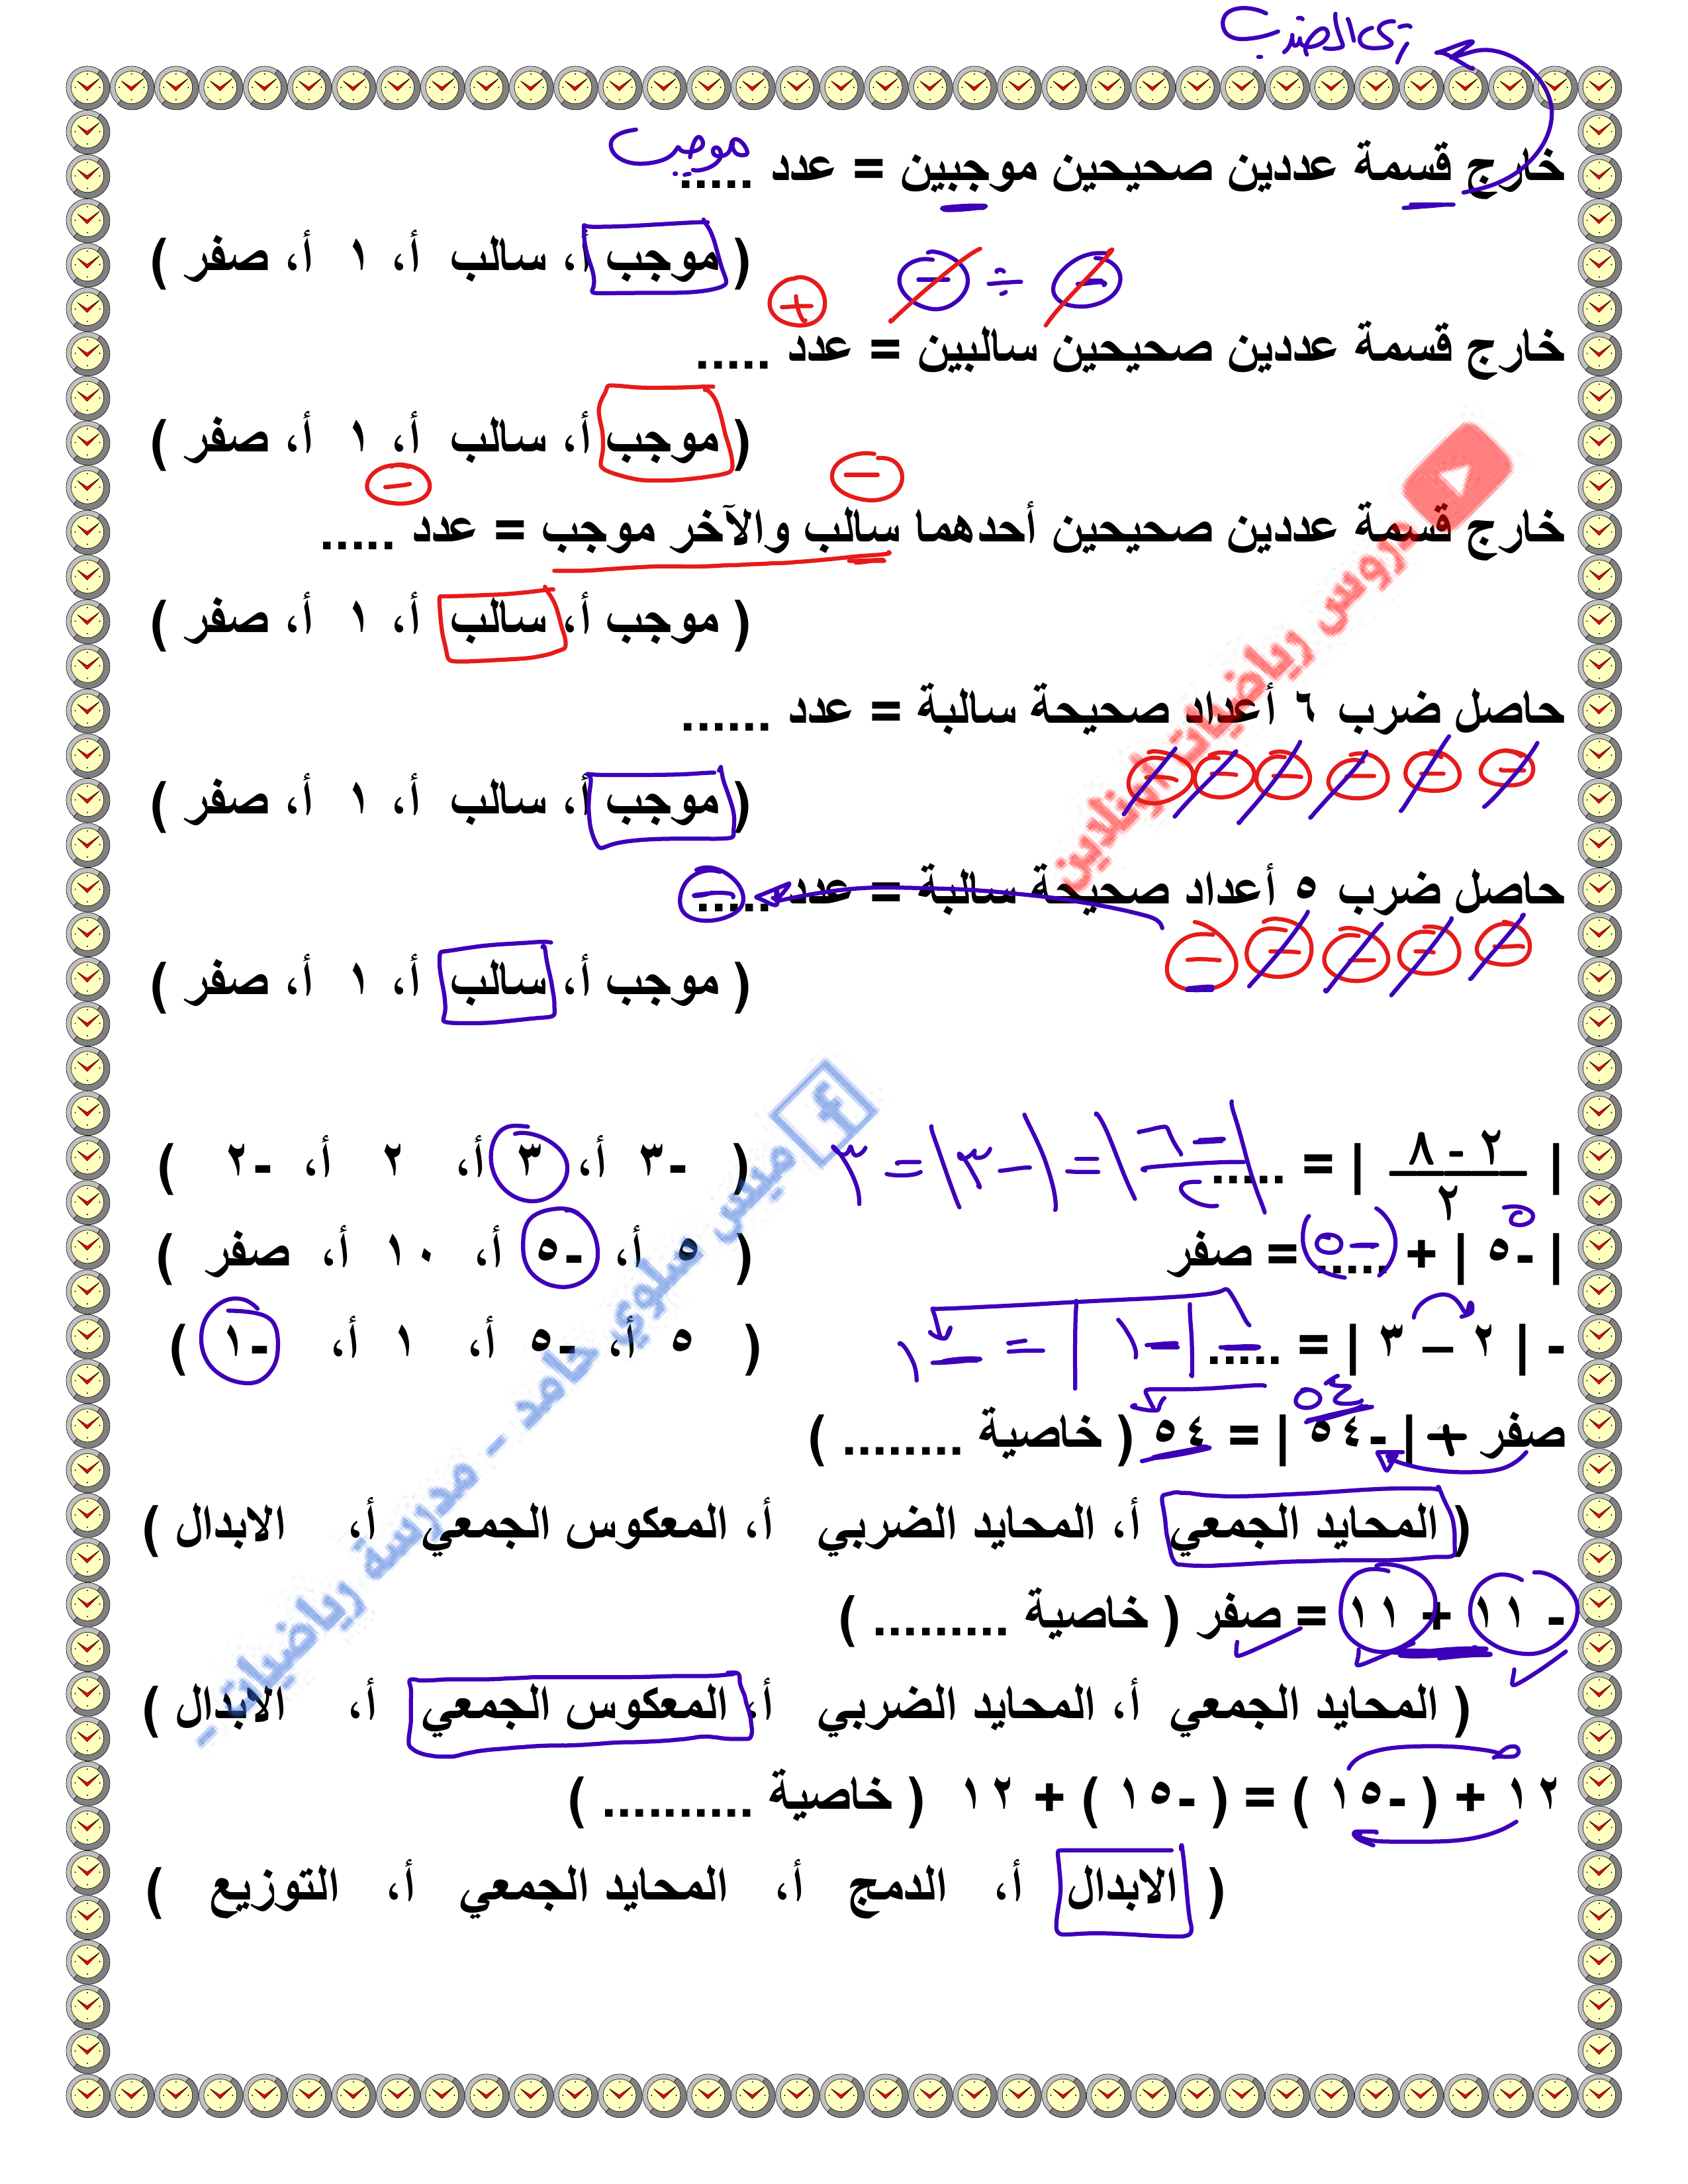 زى الضرب
خارج قسمة عددين صحيحين موجبين = عدد ..... موجب
( موجب أ، سالب أ، ١ أ، صفر )
- ÷ -
+
خارج قسمة عددين صحيحين سالبين = عدد .....
( موجب أ، سالب أ، ١ أ، صفر )
- -
خارج قسمة عددين صحيحين أحدهما سالب والآخر موجب = عدد .....
( موجب أ، سالب أ، ١ أ، صفر )
حاصل ضرب ٦ أعداد صحيحة سالبة = عدد ......
- - - - - -
( موجب أ، سالب أ، ١ أ، صفر )
حاصل ضرب ٥ أعداد صحيحة سالبة = عدد ..... -
- - - - -
( موجب أ، سالب أ، ١ أ، صفر )
| ٢ - ٨ / ٢ | = ..... |-٦ / ٢| = |-٣| = ٣ ( -٣ أ، ٣ أ، ٢ أ، -٢ )
٥
| -٥ | + ..... -٥ = صفر ( ٥ أ، -٥ أ، ١٠ أ، صفر )
- | ٢ – ٣ | = ..... - |-١| = -١ ( ٥ أ، -٥ أ، ١ أ، -١ )
٥٤
صفر + | -٥٤ | = ٥٤ ( خاصية ........ )
( المحايد الجمعي أ، المحايد الضربي أ، المعكوس الجمعي أ، الابدال )
- ١١ + ١١ = صفر ( خاصية ......... )
( المحايد الجمعي أ، المحايد الضربي أ، المعكوس الجمعي أ، الابدال )
١٢ + ( -١٥ ) = ( -١٥ ) + ١٢ ( خاصية .......... )
( الابدال أ، الدمج أ، المحايد الجمعي أ، التوزيع )
دروس رياضيات اونلاين
ميس سلوي حامد - مدرسة رياضيات -